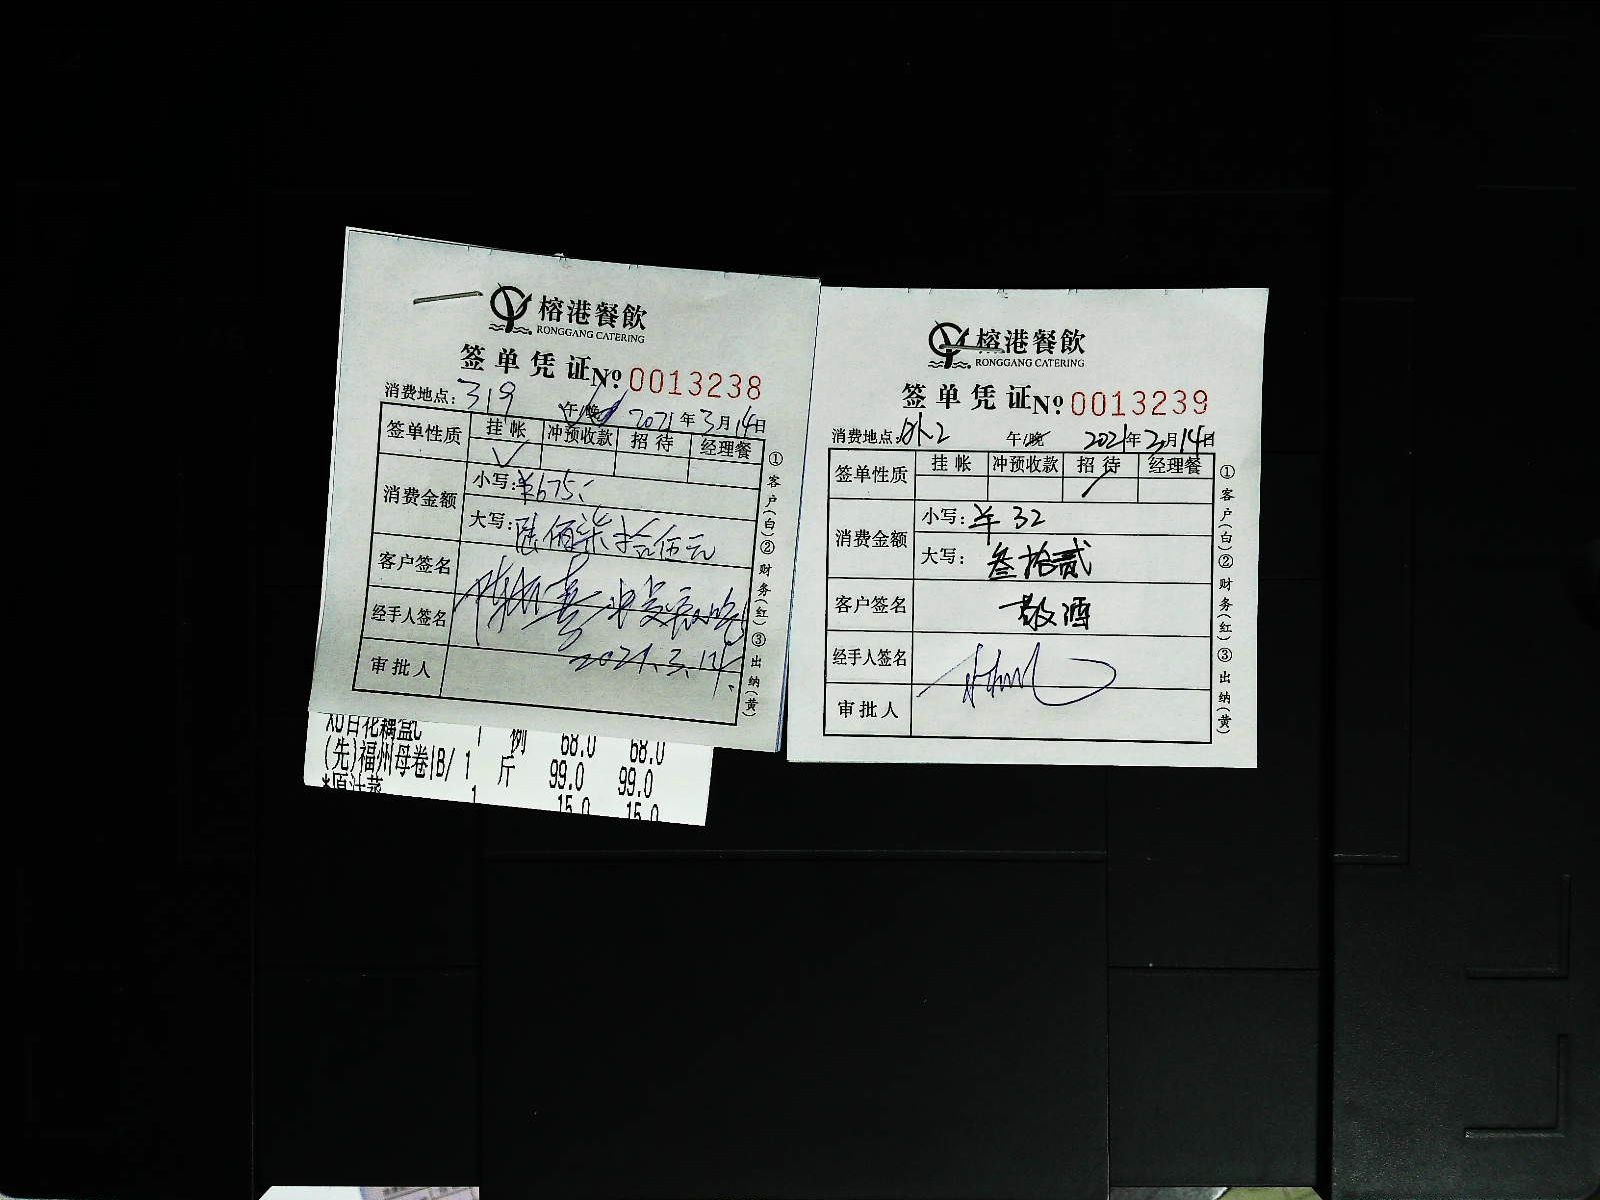 榕港餐飲
RONGGANG CATERING
签单凭证 No 0013238
消费地点：319 午/晚 2021年3月14日
签单性质 挂帐 冲预收款 招待 经理餐
✓
消费金额 小写：¥675
大写：陆佰柒拾伍元
客户签名
经手人签名
2021.3.14.
审批人
①客户(白)②财务(红)③出纳(黄)
XO百花藕盒 1 例 68.0 68.0
(先)福州母卷1B/ 1 斤 99.0 99.0
*原汁蒸 1 15.0 15.0
榕港餐飲
RONGGANG CATERING
签单凭证 No 0013239
消费地点： 午/晚 2021年3月14日
签单性质 挂帐 冲预收款 招待 经理餐
消费金额 小写：¥32
大写：叁拾贰
客户签名 敬酒
经手人签名
审批人
①客户(白)②财务(红)③出纳(黄)